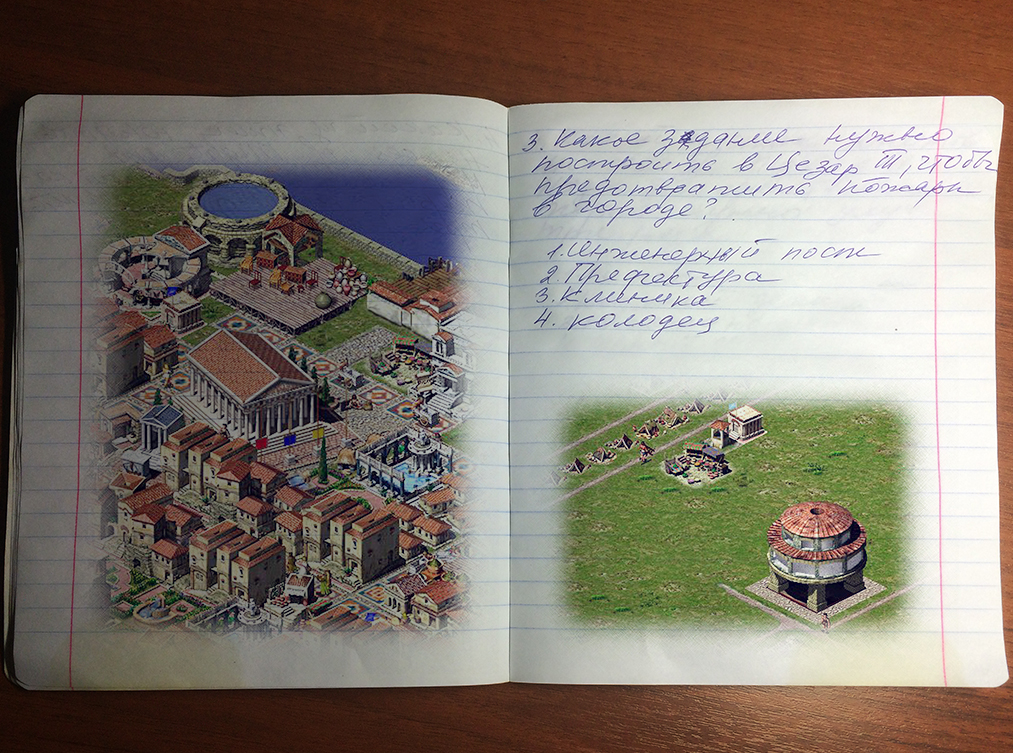 3. Какое здание нужно
построить в Цезарь III, чтобы
предотвратить пожары
в городе?
1. Инженерный пост
2. Префектура
3. Клиника
4. колодец